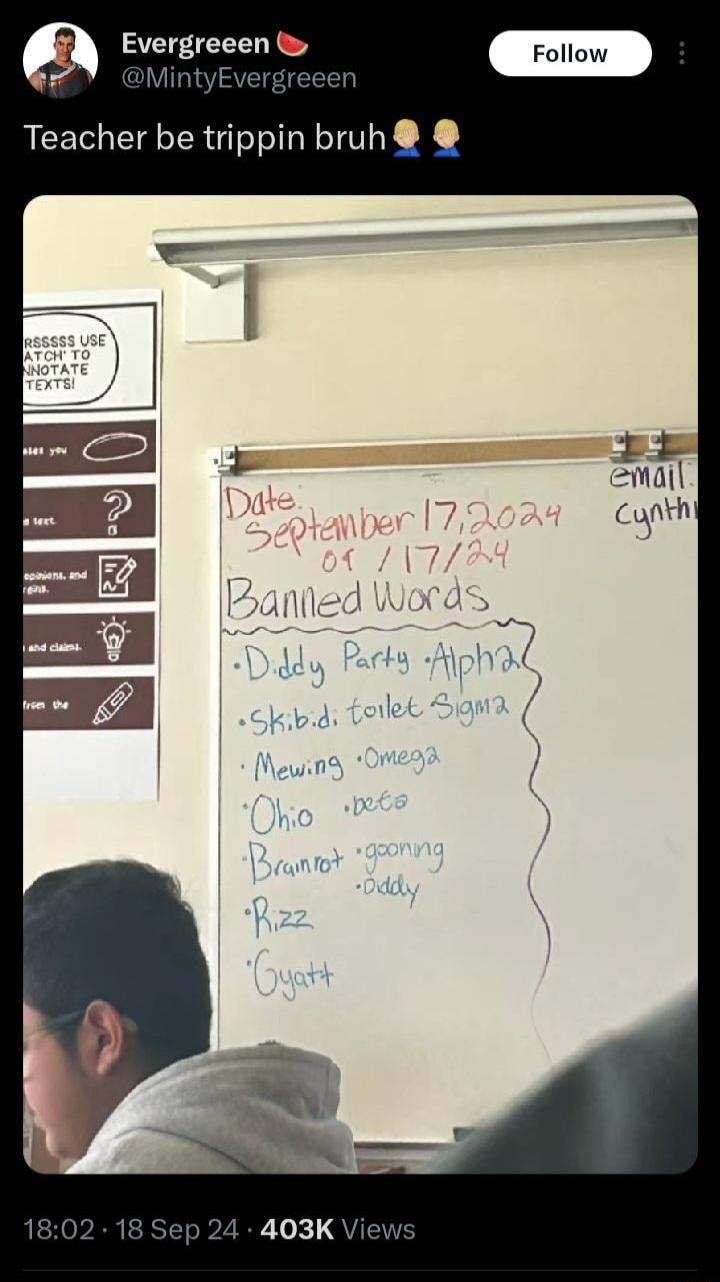 Evergreeen 🍉
@MintyEvergreeen
Follow
Teacher be trippin bruh🤦🏼‍♂️🤦🏼‍♂️
RSSSSS USE
ATCH' TO
NNOTATE
TEXTS!
you
text
opinions, and
and claims.
from the
email:
Cynthi
Date:
September 17, 2024
09 / 17 / 24
Banned Words
• Diddy Party • Alpha
• Skibidi toilet Sigma
• Mewing • Omega
• Ohio • beta
• Brainrot • gooning
• Diddy
• Rizz
• Gyatt
18:02 · 18 Sep 24 · 403K Views